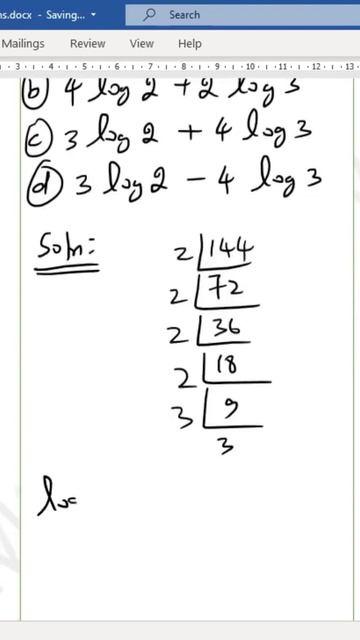 ns.docx - Saving...
Search
Mailings Review View Help
3 4 5 6 7 8 9 10 11 12 13
(b) 4 log 2 + 2 log 3
(c) 3 log 2 + 4 log 3
(d) 3 log 2 - 4 log 3
Soln:
2 144
2 72
2 36
2 18
3 9
3